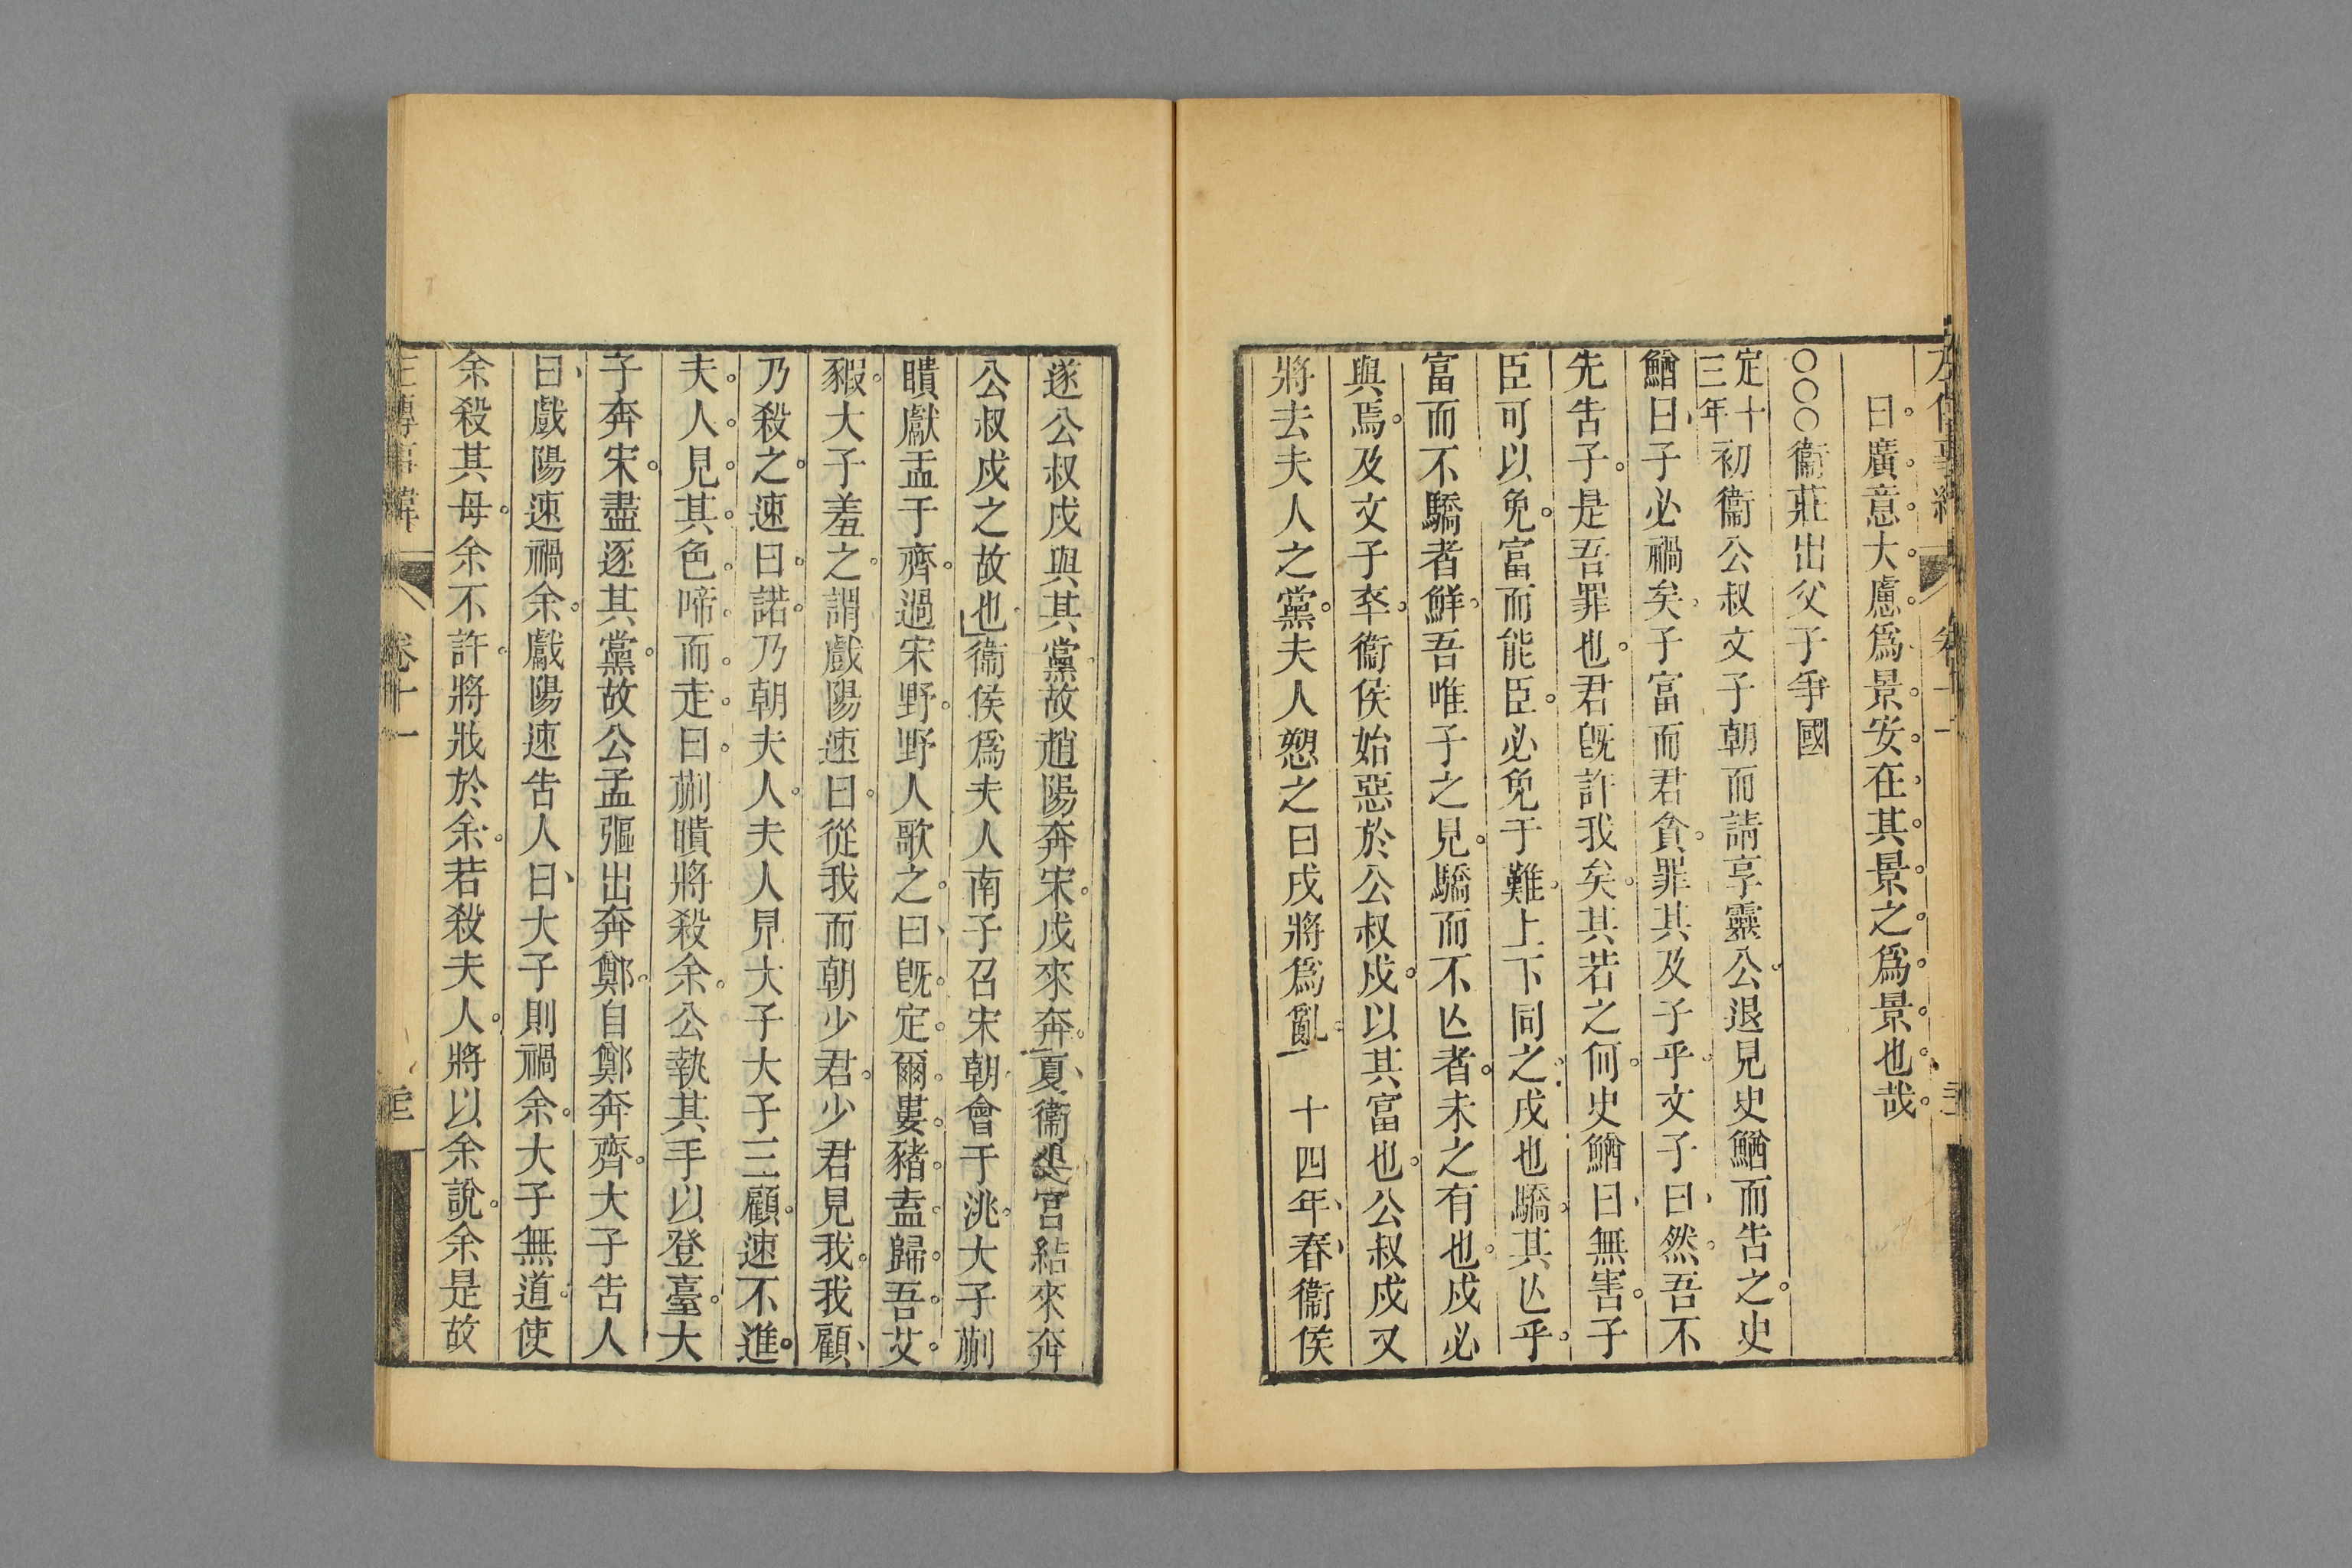 曰廣意大慮爲景安在其景之爲景也哉
〇〇〇衞莊出父子爭國
定十三年初衞公叔文子朝而請享靈公退見史鰌而告之史
鰌曰子必禍矣子富而君貪罪其及子乎文子曰然吾不
先告子是吾罪也君旣許我矣其若之何史鰌曰無害子
臣可以免富而能臣必免于難上下同之戍也驕其亾乎
富而不驕者鮮吾唯子之見驕而不亾者未之有也戍必
與焉及文子卒衞侯始惡於公叔戍以其富也公叔戍又
將去夫人之黨夫人愬之曰戍將爲亂 十四年春衞侯
逐公叔戍與其黨故趙陽奔宋戍來奔夏衞北宮結來奔
公叔戍之故也衞侯爲夫人南子召宋朝會于洮大子蒯
聵獻盂于齊過宋野野人歌之曰旣定爾婁豬盍歸吾艾
豭大子羞之謂戲陽速曰從我而朝少君少君見我我顧
乃殺之速曰諾乃朝夫人夫人見大子大子三顧速不進
夫人見其色啼而走曰蒯聵將殺余公執其手以登臺大
子奔宋盡逐其黨故公孟彄出奔鄭自鄭奔齊大子告人
曰戲陽速禍余戲陽速告人曰大子則禍余大子無道使
余殺其母余不許將戕於余若殺夫人將以余說余是故
卷十一